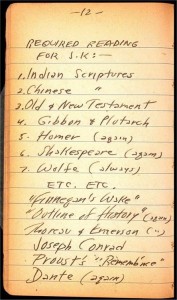 —12—
REQUIRED READING
FOR J.K:—
1. Indian Scriptures
2. Chinese "
3. Old & New Testament
4. Gibbon & Plutarch
5. Homer (again)
6. Shakespeare (again)
7. Wolfe (always)
ETC. ETC.
"Finnegan's Wake"
"Outline of History" (again)
Thoreau & Emerson (")
Joseph Conrad
Proust's "Remembrance"
Dante (again)